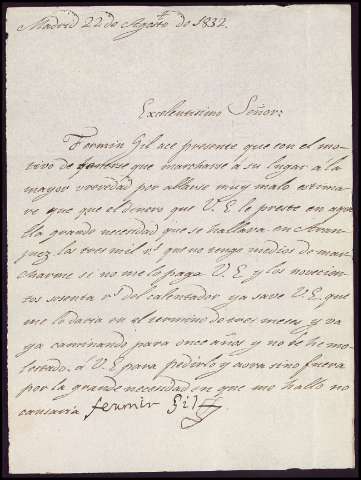 Madrid 22 de Agosto de 1832.
Excelentisimo Señor:
Fermin Gil ace presente que con el mo-
tivo de tenerse que marcharse á su lugar á la
mayor vrevedad por allarse muy malo estima-
re que que el dinero que V. E. le preste en aque-
lla grande necesidad que se hallava en Aran-
juez los tres mil rs. que no tengo medios de mar-
charme si no me lo paga V. E. y los novecien-
tos sesenta rs. del calentador ya save V. E. que
me lo daria en el termino de tres meses y va
ya caminando para once años y no le he mo-
lestado á V. E para pedirlo y aora sino fuera
por la grande necesidad en que me hallo no
cansaria fermin Gil